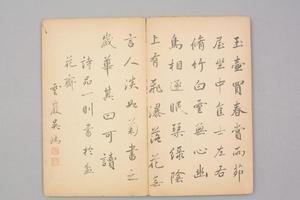 玉壺買春賞雨茆
屋坐中佳士左右
脩竹白雲無心幽
鳥相逐眠琴綠陰
上有飛瀑落花無
言人淡如菊書之
歲華其曰可讀
詩品一則書於
花齋